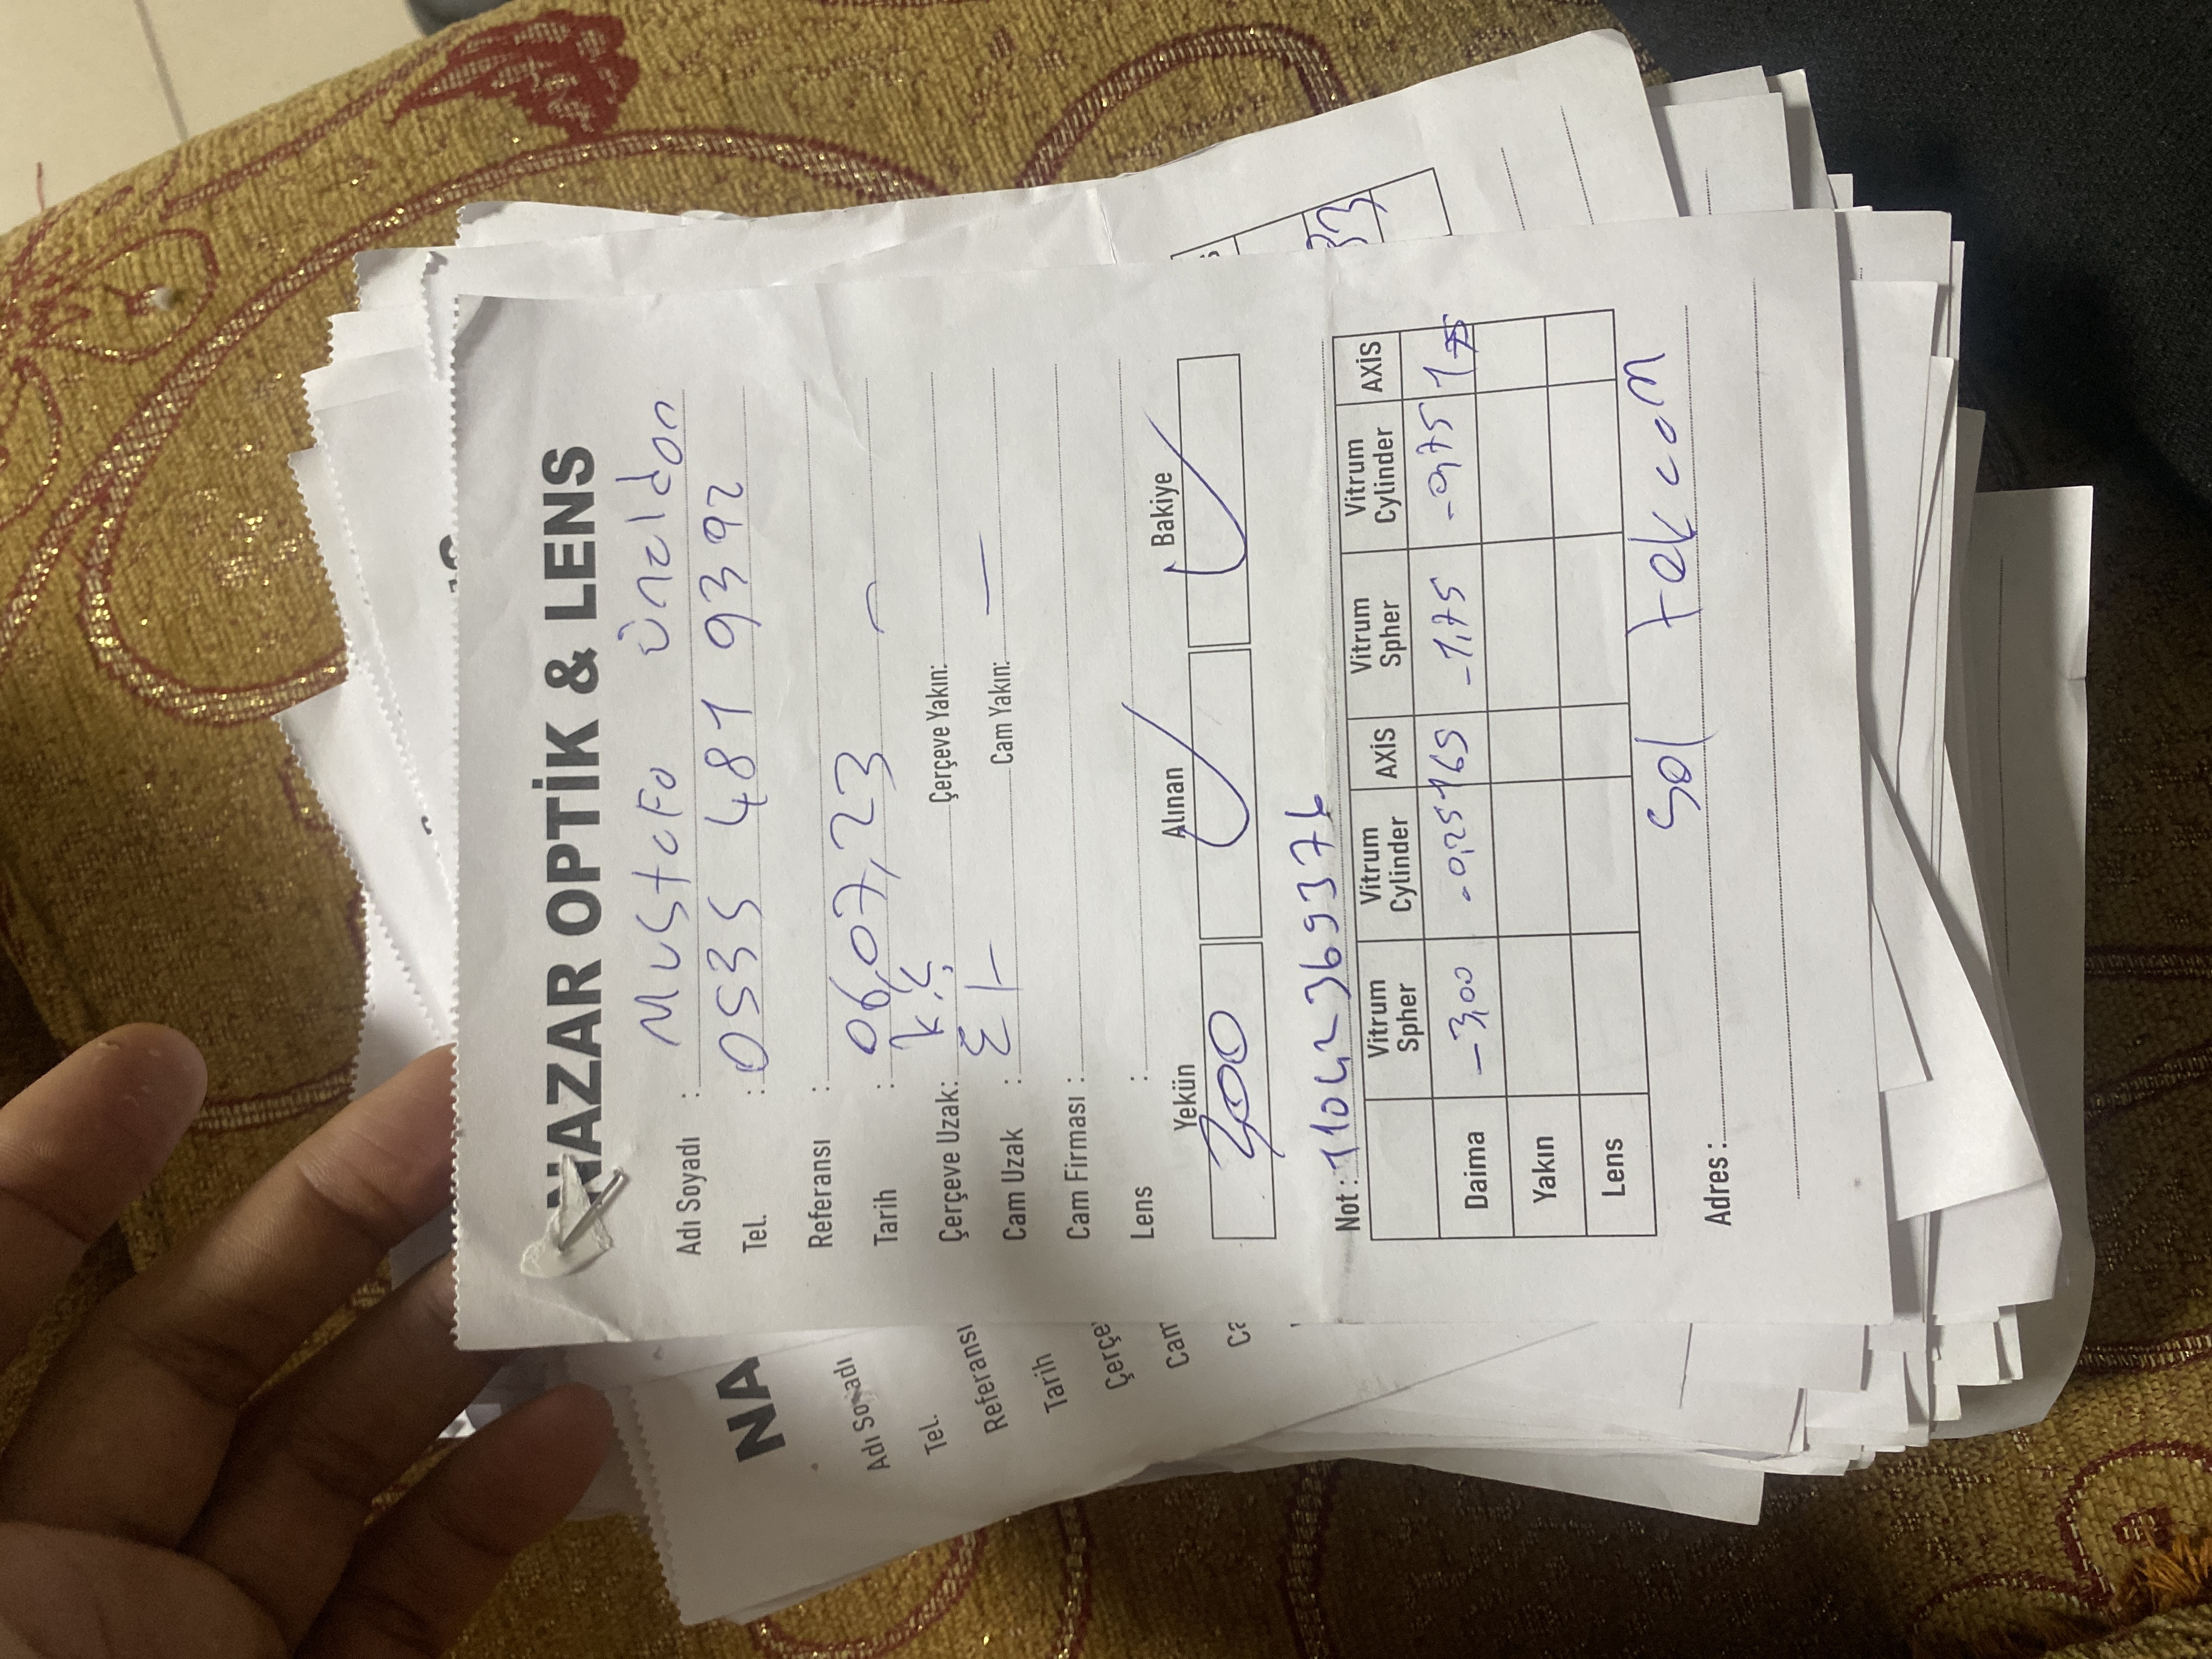 NAZAR OPTİK & LENS
Adı Soyadı : Mustafa Ünaldan
Tel. : 0535 481 9392
Referansı :
Tarih : 06,07,23
Çerçeve Uzak: k.ç Çerçeve Yakın:
Cam Uzak : Cam Yakın: —
Cam Firması :
Lens :
Yekün Alınan Bakiye
300
Not : 11042369376
Vitrum Spher Vitrum Cylinder AXİS Vitrum Spher Vitrum Cylinder AXİS
Daima -3,00 -0,25 165 -1,75 -0,75
Yakın
Lens
Sol tek cam
Adres :
NA
Adı Soyadı
Tel.
Referansı
Tarih
Çerçe
Cam
Ca